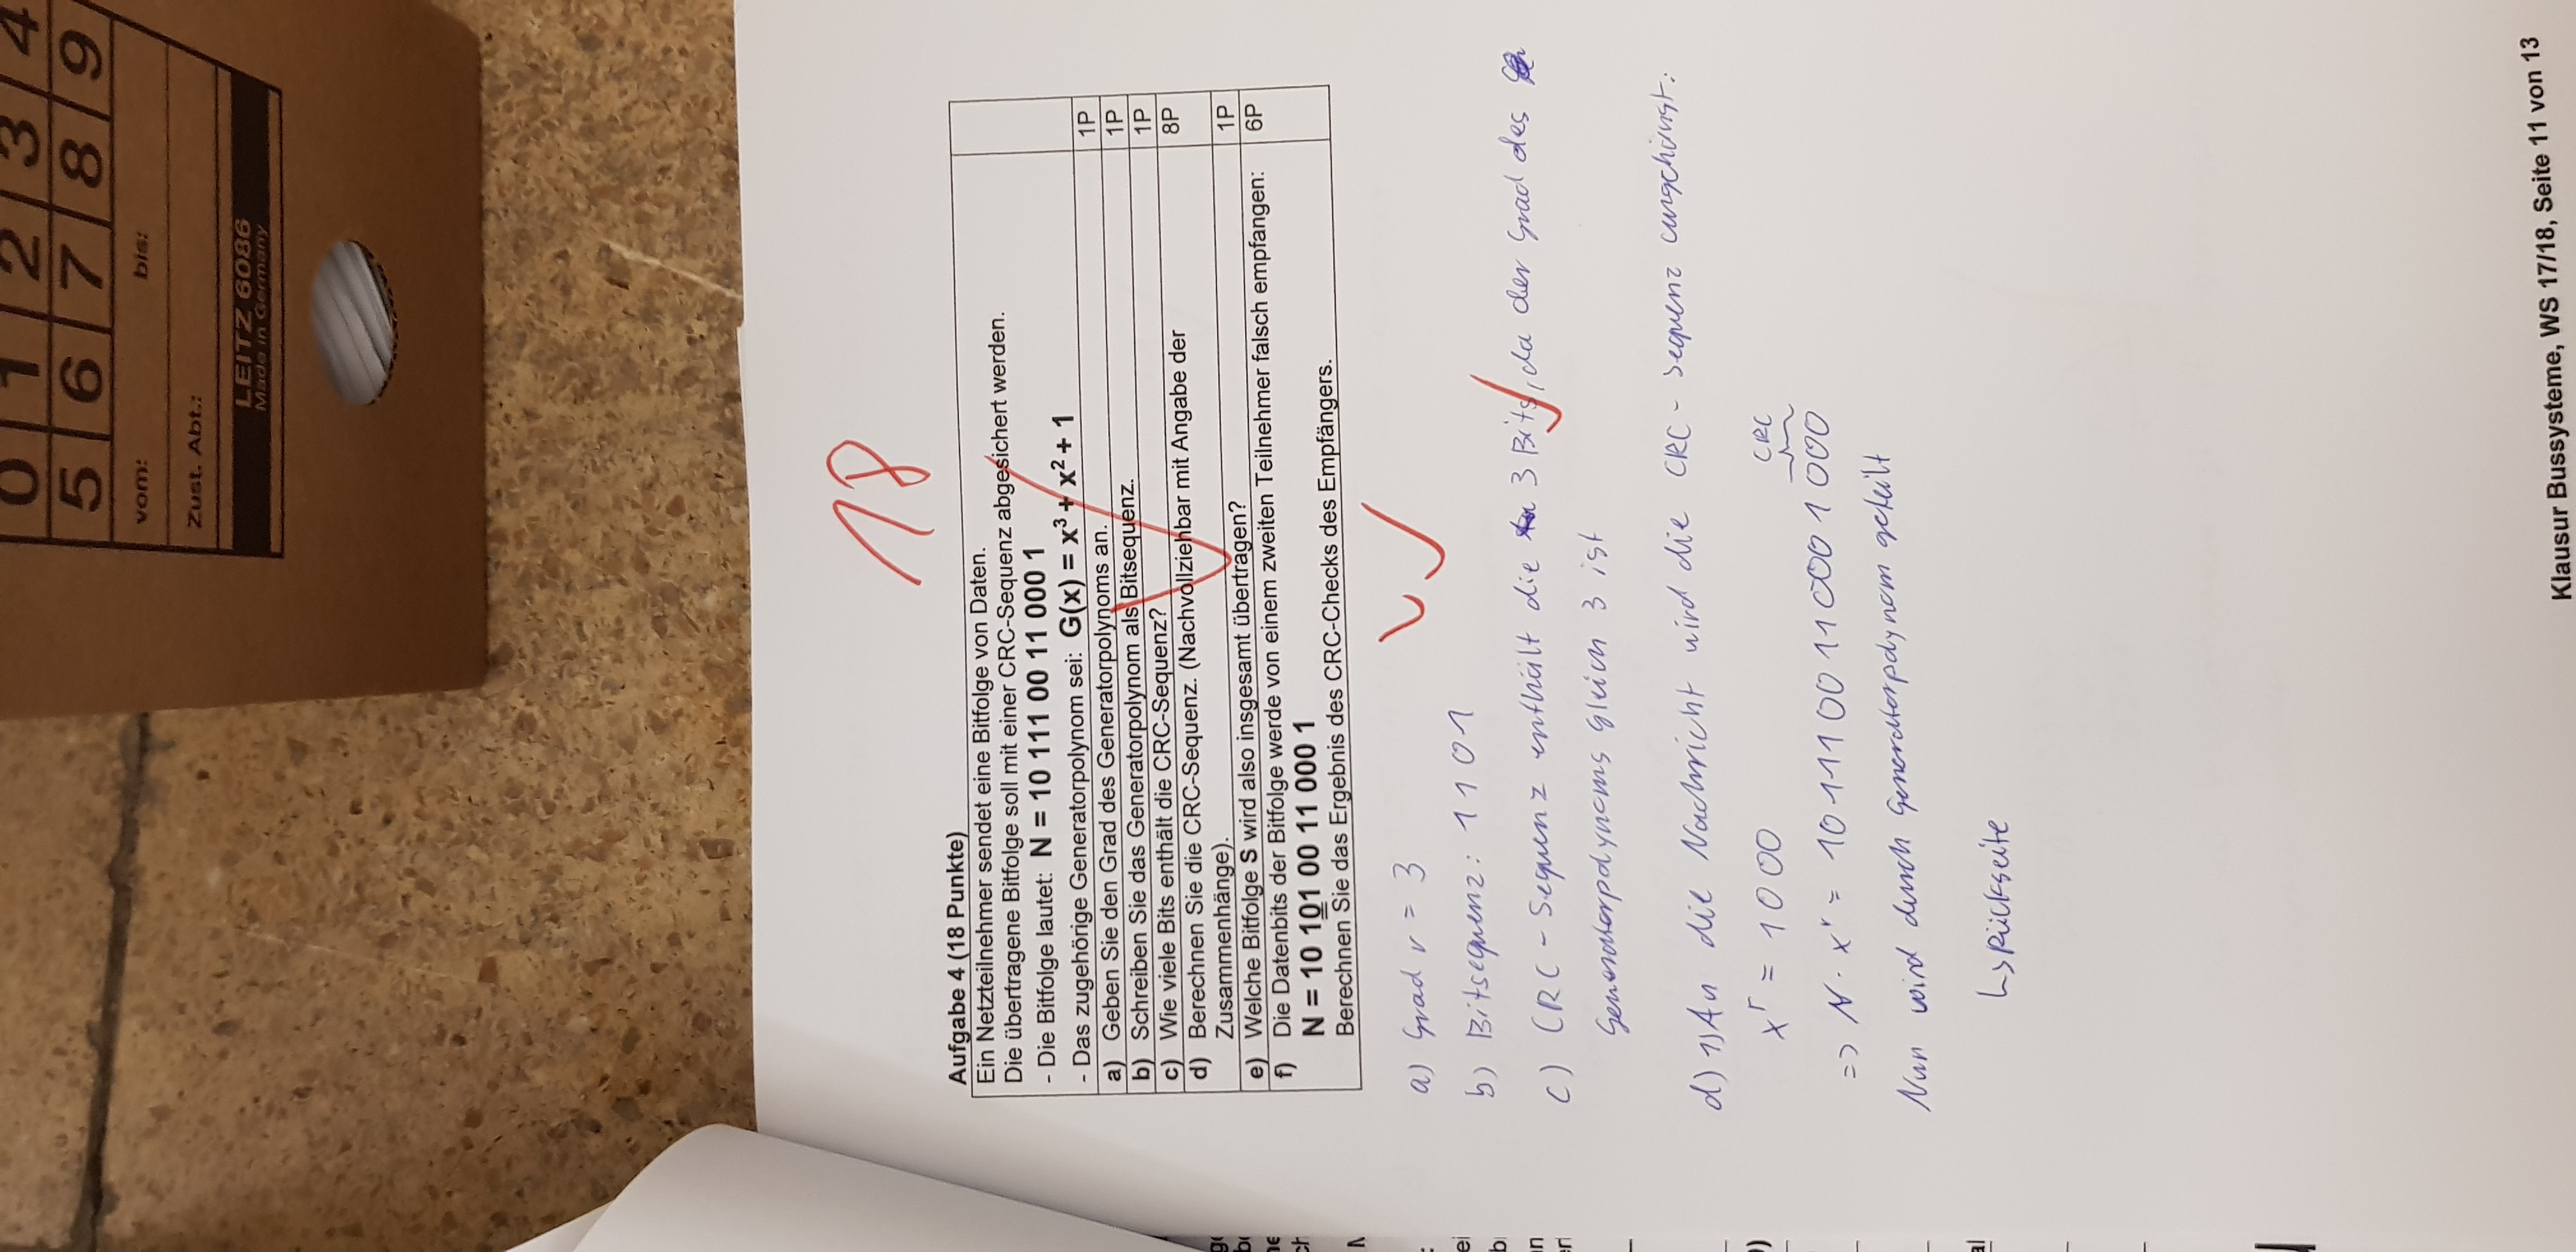 0 1 2 3 4
5 6 7 8 9
vom: bis:
Zust. Abt.:
LEITZ 6086
Made in Germany
18
Aufgabe 4 (18 Punkte)
Ein Netzteilnehmer sendet eine Bitfolge von Daten.
Die übertragene Bitfolge soll mit einer CRC-Sequenz abgesichert werden.
- Die Bitfolge lautet: N = 10 111 00 11 000 1
- Das zugehörige Generatorpolynom sei: G(x) = x³ + x² + 1
a) Geben Sie den Grad des Generatorpolynoms an. 1P
b) Schreiben Sie das Generatorpolynom als Bitsequenz. 1P
c) Wie viele Bits enthält die CRC-Sequenz? 1P
d) Berechnen Sie die CRC-Sequenz. (Nachvollziehbar mit Angabe der 8P
Zusammenhänge).
e) Welche Bitfolge S wird also insgesamt übertragen? 1P
f) Die Datenbits der Bitfolge werde von einem zweiten Teilnehmer falsch empfangen: 6P
N = 10 101 00 11 000 1
Berechnen Sie das Ergebnis des CRC-Checks des Empfängers.
a) Grad r = 3
b) Bitsequenz: 1101
c) CRC-Sequenz enthält die 3 Bits, da der Grad des
Generatorpolynoms gleich 3 ist
d) 1) An die Nachricht wird die CRC-Sequenz angehängt:
xʳ = 1000
CRC
=> N · xʳ = 1011100110001000
Nun wird durch Generatorpolynom geteilt
↳ Rückseite
Klausur Bussysteme, WS 17/18, Seite 11 von 13